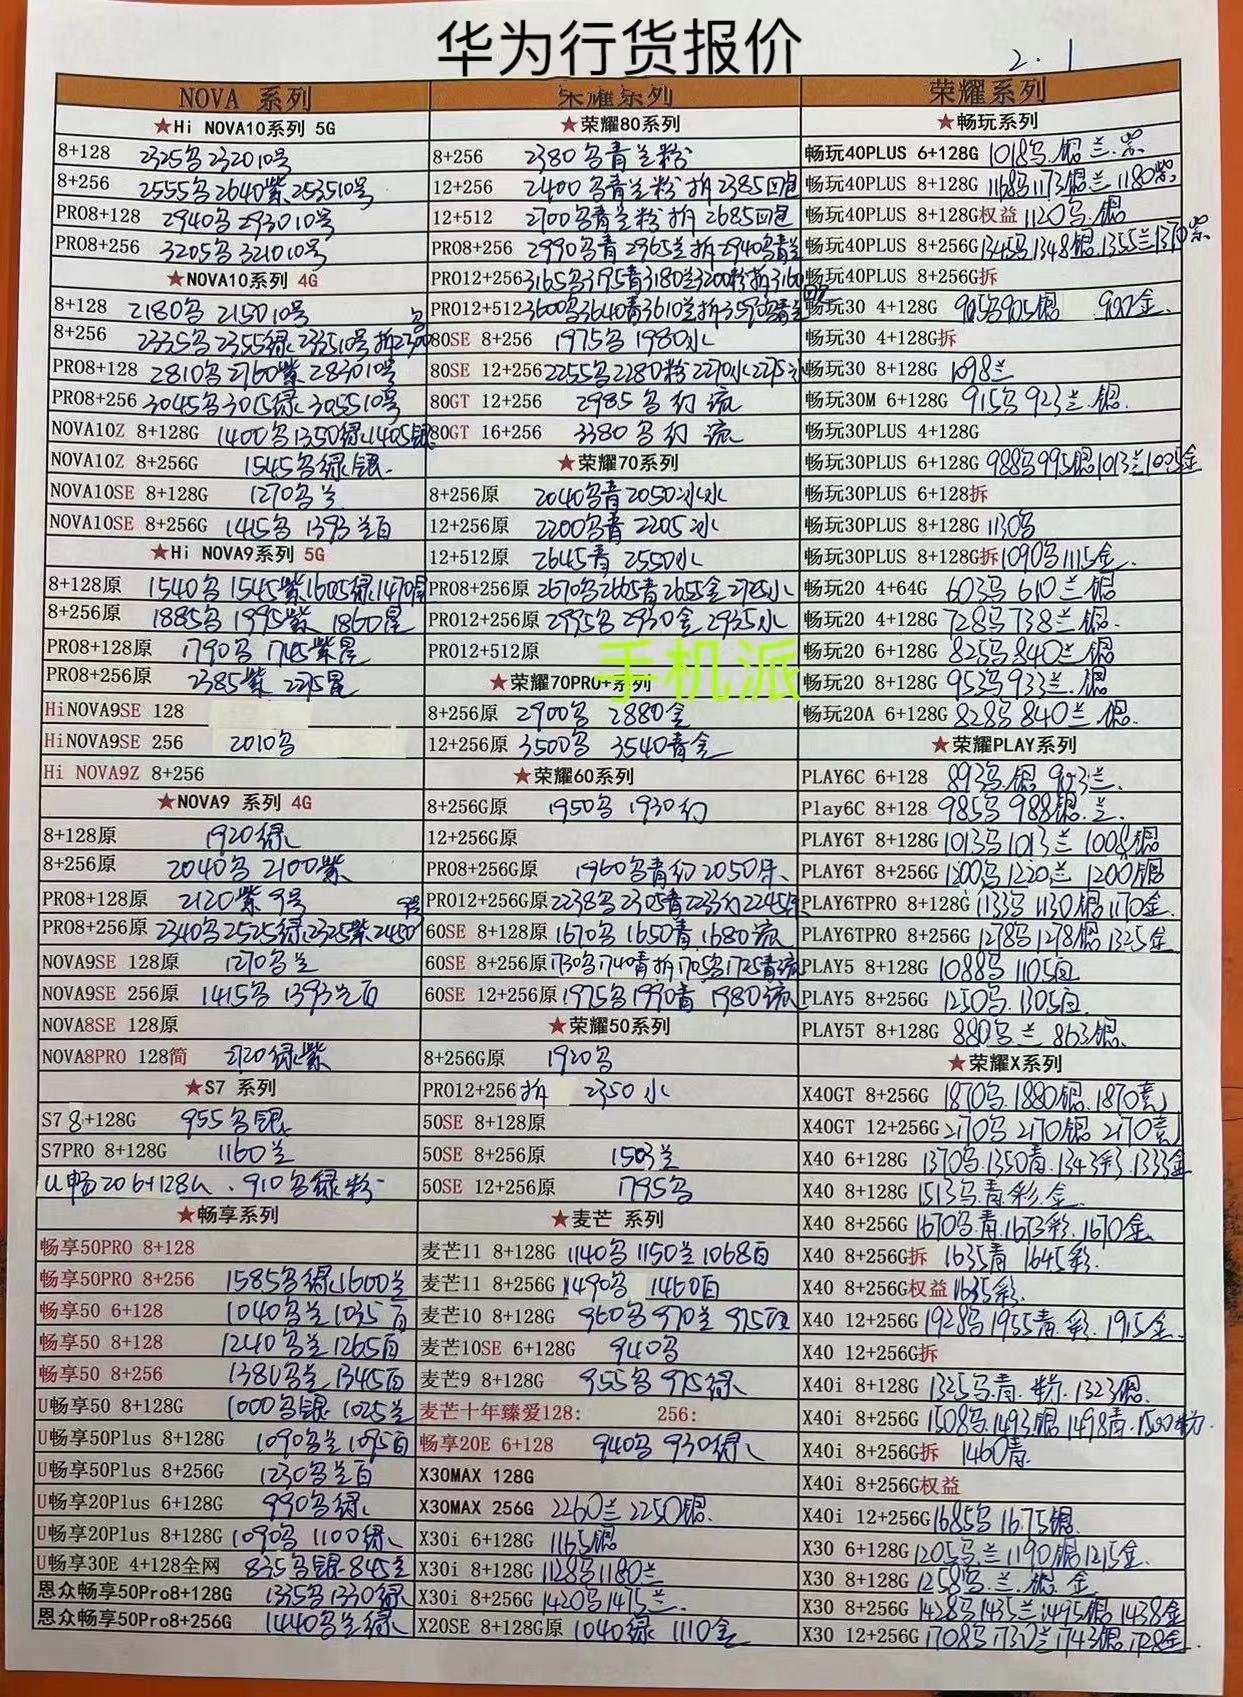 华为行货报价
2.1
NOVA 系列
★Hi NOVA10系列 5G
8+128 2325乌232010号
8+256 2555乌2640紫253510号
PRO8+128 2940乌293010号
PRO8+256 3205乌321010号
★NOVA10系列 4G
8+128 2180乌215010号
8+256 2335乌2355绿233510号拆2300乌
PRO8+128 2810乌2760紫283010号
PRO8+256 3045乌3015绿305510号
NOVA10Z 8+128G 1400乌1350绿1405银
NOVA10Z 8+256G 1545乌绿银
NOVA10SE 8+128G 1270乌兰
NOVA10SE 8+256G 1415乌1393兰百
★Hi NOVA9系列 5G
8+128原 1540乌1545紫1605绿1470星
8+256原 1885乌1995紫1860星
PRO8+128原 1790乌1745紫星
PRO8+256原 2385紫2275星
HiNOVA9SE 128
HiNOVA9SE 256 2010乌
Hi NOVA9Z 8+256
★NOVA9 系列 4G
8+128原 1920绿
8+256原 2040乌2100紫
PRO8+128原 2120紫9号
PRO8+256原 2340乌2525绿2325紫24509号
NOVA9SE 128原 1270乌兰
NOVA9SE 256原 1415乌1393兰百
NOVA8SE 128原
NOVA8PRO 128简 2720绿紫
★S7 系列
S7 8+128G 955乌银
S7PRO 8+128G 1160兰
U畅20 6+128G.910乌绿粉
★畅享系列
畅享50PRO 8+128
畅享50PRO 8+256 1585乌绿1600兰
畅享50 6+128 1040乌兰1035百
畅享50 8+128 1240乌兰1265百
畅享50 8+256 1380乌兰1345百
U畅享50 8+128G 1000乌银1025兰
U畅享50Plus 8+128G 1090乌兰1095百
U畅享50Plus 8+256G 1230乌兰百
U畅享20Plus 6+128G 990乌绿
U畅享20Plus 8+128G 1090乌1100绿
U畅享30E 4+128全网 835乌银845兰
恩众畅享50Pro8+128G 1335乌1330绿
恩众畅享50Pro8+256G 1440乌兰绿
荣耀系列
★荣耀80系列
8+256 2380乌青兰粉
12+256 2400乌青兰粉拆2385回包
12+512 2700乌青兰粉拆2685回包
PRO8+256 2990乌青2965兰拆2940乌青兰
PRO12+256 3165乌3175青3180兰3200粉拆3160
PRO12+512 3600乌3640青3610兰拆3590乌青兰
80SE 8+256 1975乌1980水
80SE 12+256 2255乌2280粉2270水2275
80GT 12+256 2985乌幻流
80GT 16+256 3380乌幻流
★荣耀70系列
8+256原 2040乌青2050冰水
12+256原 2200乌青2205冰
12+512原 2645青2550水
PRO8+256原 2670乌2605青2655金2725水
PRO12+256原 2995乌2930金2935水
PRO12+512原
手机派
★荣耀70PRO+系列
8+256原 2900乌2880金
12+256原 3500乌3540青金
★荣耀60系列
8+256G原 1950乌1930幻
12+256G原
PRO8+256G原 1960乌青幻2050朱
PRO12+256G原 2238乌2305青2233幻2245朱
60SE 8+128原 1670乌1650青1680流
60SE 8+256原 1730乌1740青拆1705乌1725青流
60SE 12+256原 1975乌1990青1980流
★荣耀50系列
8+256G原 1920乌
PRO12+256拆 2350水
50SE 8+128原
50SE 8+256原 1503兰
50SE 12+256原 1795乌
★麦芒 系列
麦芒11 8+128G 1140乌1150兰1068百
麦芒11 8+256G 1490乌1460百
麦芒10 8+128G 960乌970兰975百
麦芒10SE 6+128G 940乌
麦芒9 8+128G 955乌975绿
麦芒十年臻爱128: 256:
畅享20E 6+128 940乌930绿
X30MAX 128G
X30MAX 256G 2260兰2250银
X30i 6+128G 1165银
X30i 8+128G 1128乌1180兰
X30i 8+256G 1420乌1475兰
X20SE 8+128G原 1040绿1110金
荣耀系列
★畅玩系列
畅玩40PLUS 6+128G 1018乌.银兰.紫
畅玩40PLUS 8+128G 1168乌1173银兰1180紫
畅玩40PLUS 8+128G权益 1120乌.银
畅玩40PLUS 8+256G 1345乌1348银1355兰1370紫
畅玩40PLUS 8+256G拆
畅玩30 4+128G 905乌905银 907金
畅玩30 4+128G拆
畅玩30 8+128G 1098兰
畅玩30M 6+128G 915乌923兰.银
畅玩30PLUS 4+128G
畅玩30PLUS 6+128G 988乌995银1013兰1025金
畅玩30PLUS 6+128拆
畅玩30PLUS 8+128G 1130乌
畅玩30PLUS 8+128G拆 1090乌1115金
畅玩20 4+64G 603乌610兰银
畅玩20 4+128G 728乌738兰银
畅玩20 6+128G 825乌840兰银
畅玩20 8+128G 953乌933兰.银
畅玩20A 6+128G 828乌840兰.银
★荣耀PLAY系列
PLAY6C 6+128 893乌.银903兰
Play6C 8+128 985乌988银.兰
PLAY6T 8+128G 1013乌1013兰1008银
PLAY6T 8+256G 1200乌1220兰1200银
PLAY6TPRO 8+128G 1133乌1130银1170金
PLAY6TPRO 8+256G 1278乌1278银1325金
PLAY5 8+128G 1088乌1105百
PLAY5 8+256G 1250乌.1305百
PLAY5T 8+128G 880乌兰863银
★荣耀X系列
X40GT 8+256G 1870乌.1880银.1870竞
X40GT 12+256G 2170乌2170银2170竞
X40 6+128G 1370乌.1350青.1343彩.1333金
X40 8+128G 1513乌.青.彩.金
X40 8+256G 1670乌.青.1673彩.1670金
X40 8+256G拆 1635青1645彩
X40 8+256G权益 1635彩
X40 12+256G 1928乌1955青.彩.1915金
X40 12+256G拆
X40i 8+128G 1325乌.青.粉.1323银
X40i 8+256G 1508乌.1493银1498青.1500粉
X40i 8+256G拆 1460青
X40i 8+256G权益
X40i 12+256G 1685乌1675银
X30 6+128G 1205乌.兰1190银1215金
X30 8+128G 1258乌.兰.银.金
X30 8+256G 1428乌1435兰1445银1438金
X30 12+256G 1708乌1737兰1743银1728金